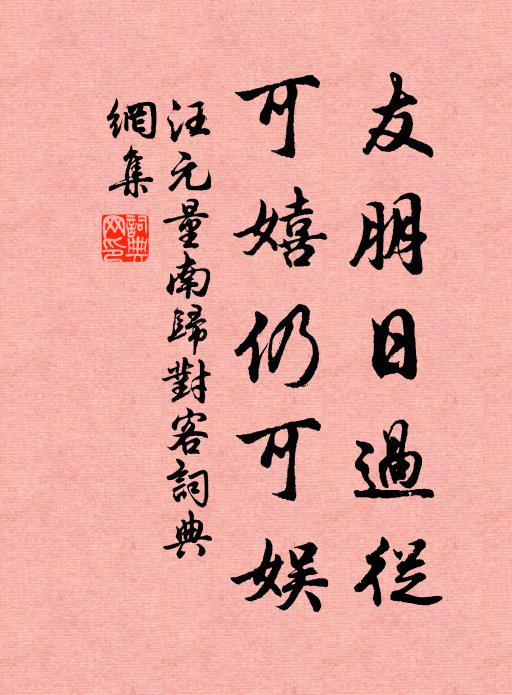 友朋日過從
可嬉仍可娱
汪元量南歸對客詞典
網集
詞典網印